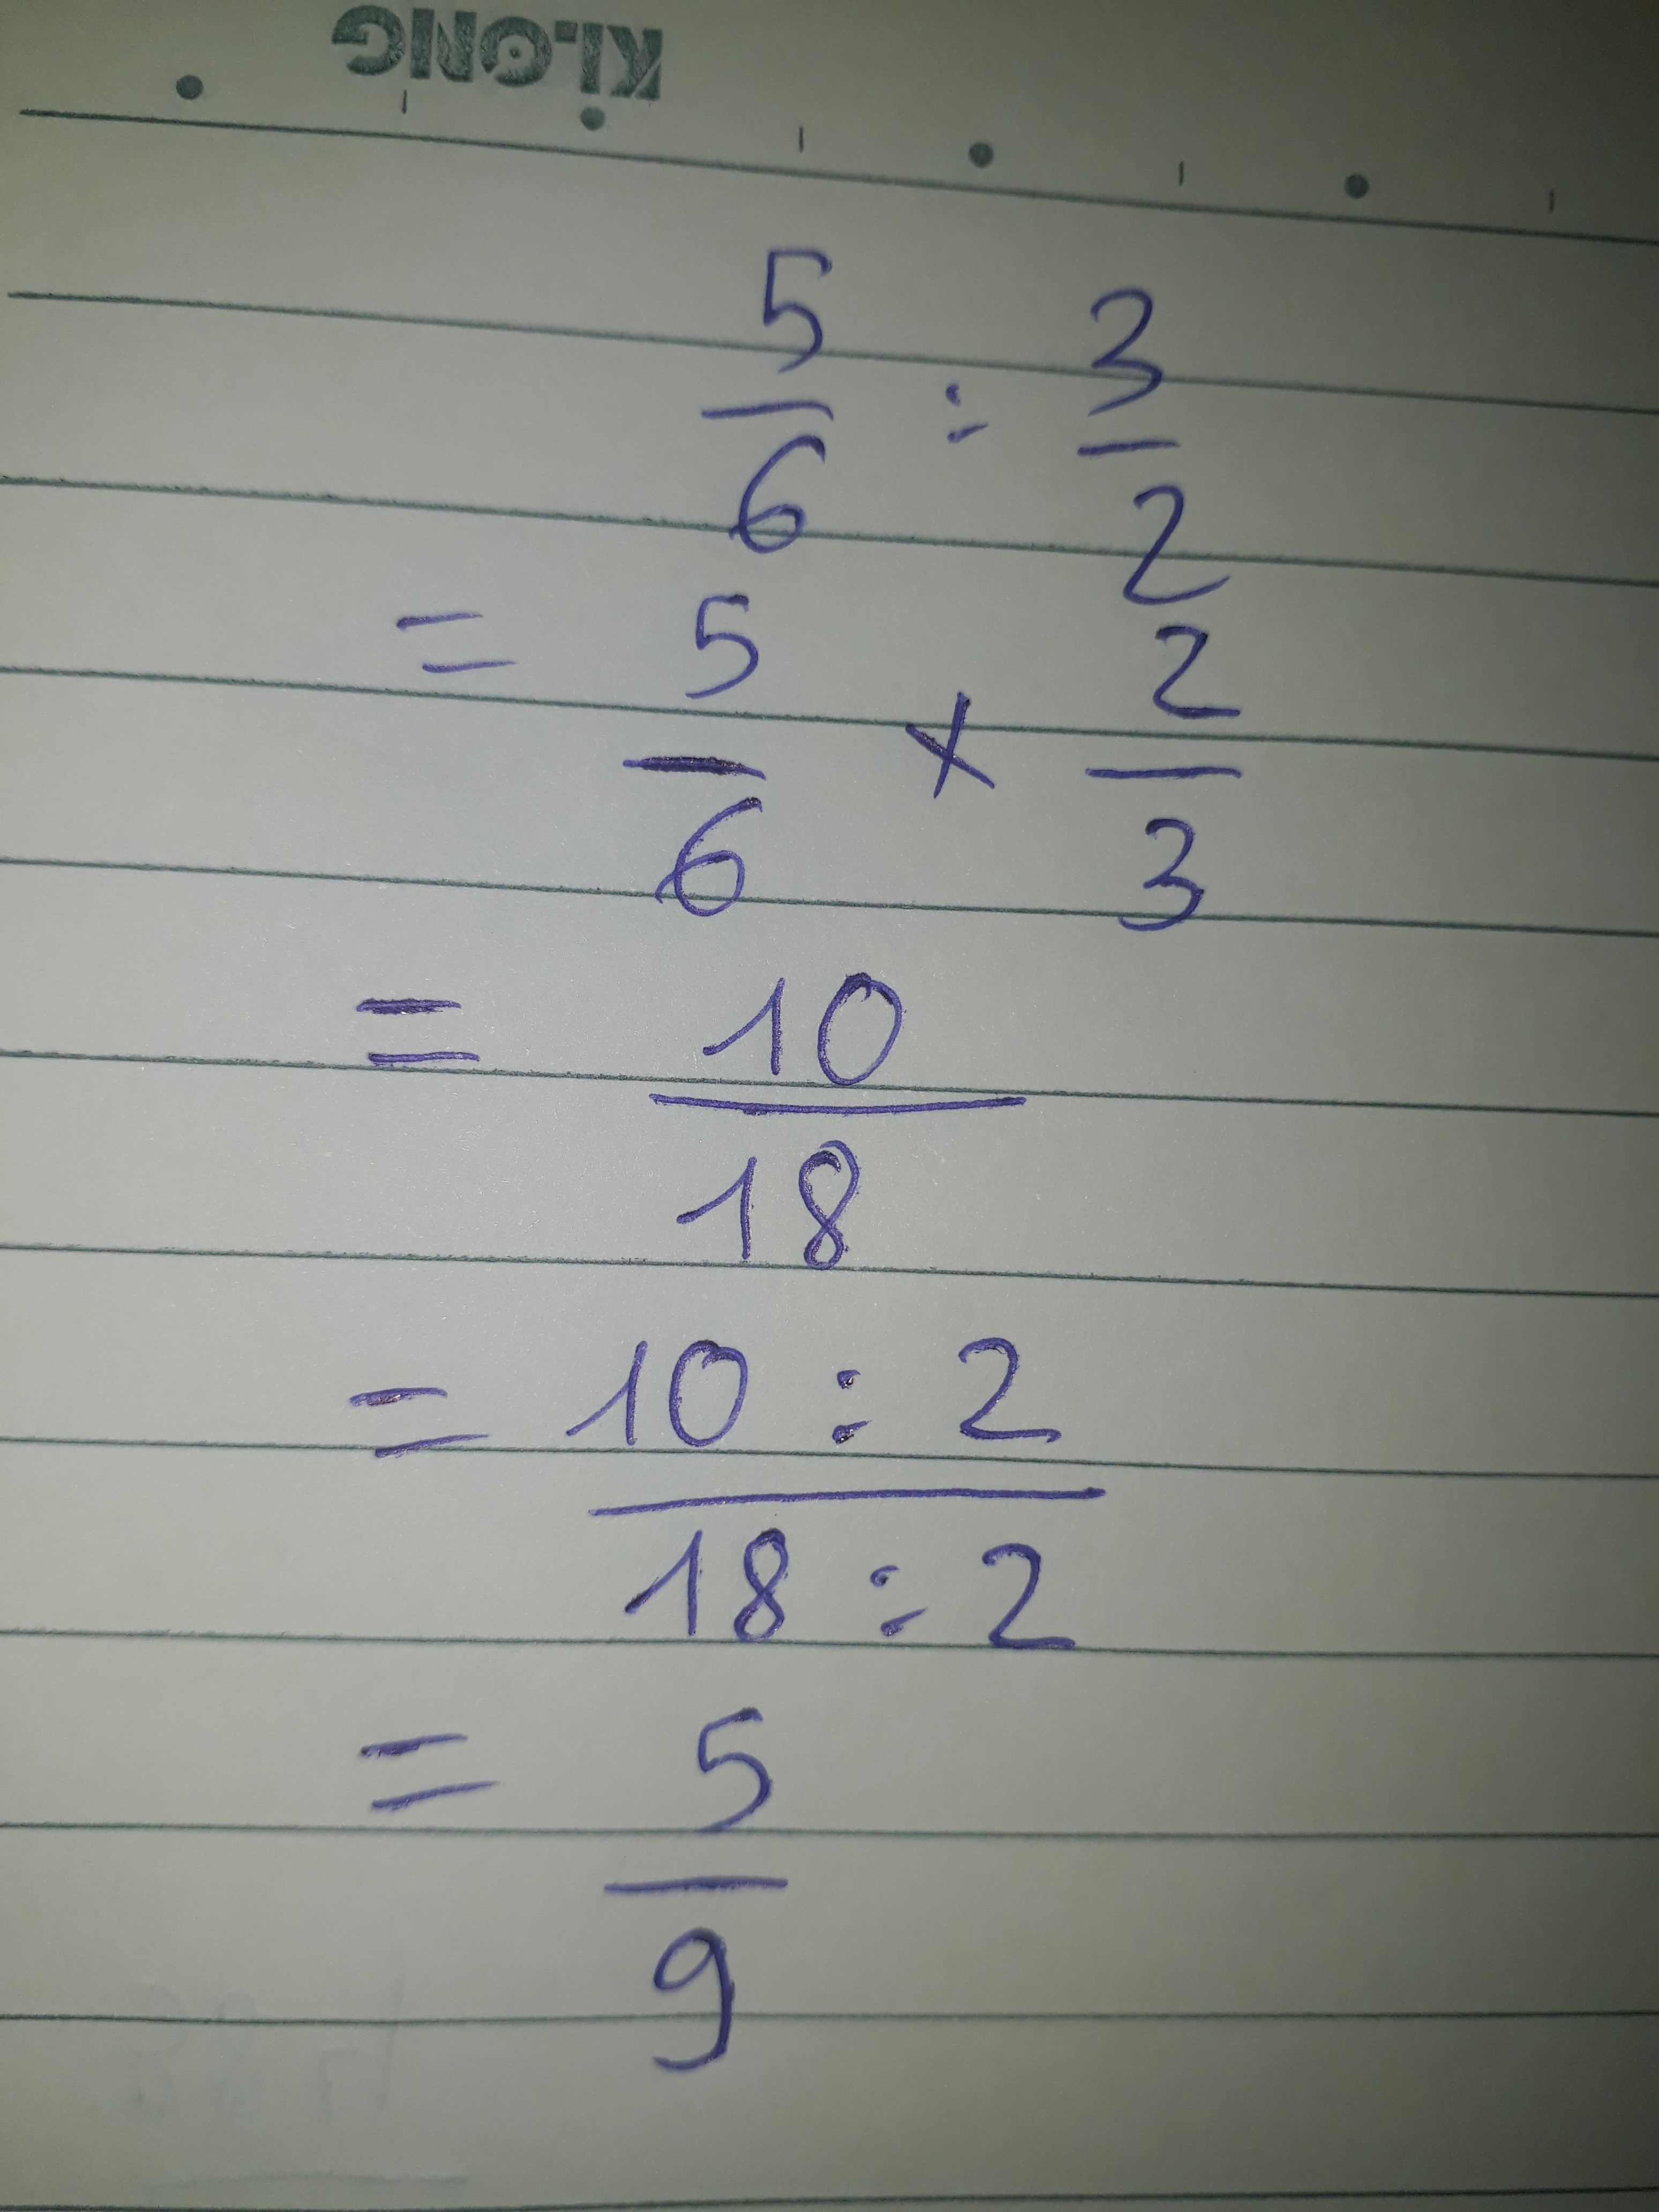 KLONG
5/6 : 3/2
= 5/6 × 2/3
= 10/18
= 10 : 2/18 : 2
= 5/9